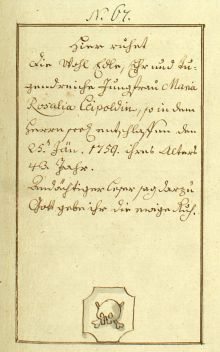 N. 67.
Hier ruhet
die Wohl Edle, Ehr und tu-
gendreiche Jungfrau Maria
Rosalia Leipoldin, so in dem
Herrn seel. entschlaffen den
25.t Jän. 1759. ihres Alters
43. Jahr.
Andächtiger leser sag darzu
Gott gebe ihr die ewige Ruh.